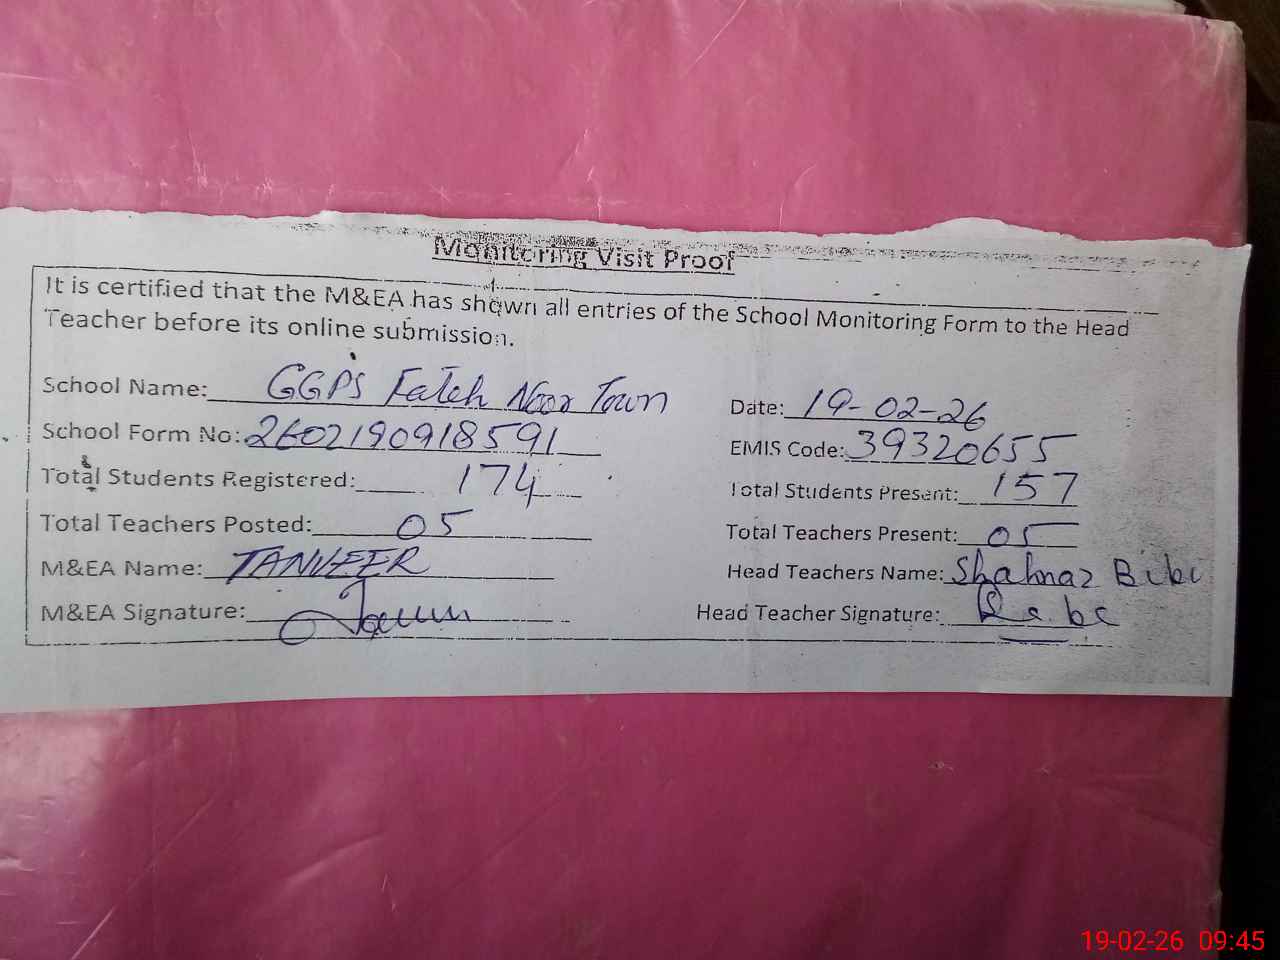 Monitoring Visit Proof
It is certified that the M&EA has shown all entries of the School Monitoring Form to the Head
Teacher before its online submission.
School Name: GGPS Fateh Noor Town
Date: 19-02-26
School Form No: 2602190918591
EMIS Code: 39320655
Total Students Registered: 174
Total Students Present: 157
Total Teachers Posted: 05
Total Teachers Present: 05
M&EA Name: TANVEER
Head Teachers Name: Shahnaz Bibi
M&EA Signature:
Head Teacher Signature:
19-02-26 09:45